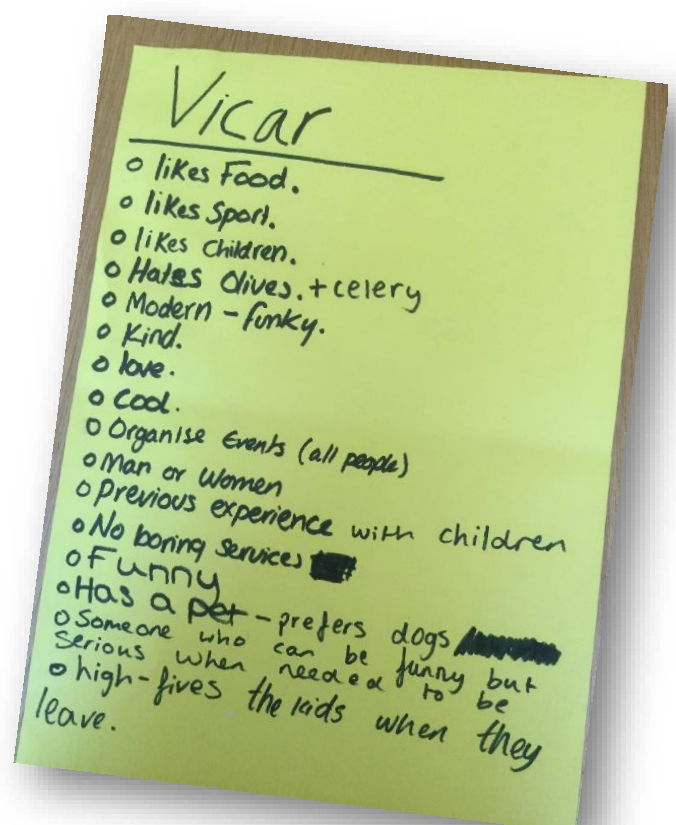 Vicar
o likes Food.
o likes Sport.
o likes Children.
o Hates Olives. + celery
o Modern - funky.
o Kind.
o love.
o Cool.
o Organise Events (all people)
o Man or Women
o Previous experience with children
o No boring services
o Funny
o Has a pet - prefers dogs
o Someone who can be funny but
serious when needed to be
o high-fives the kids when they
leave.